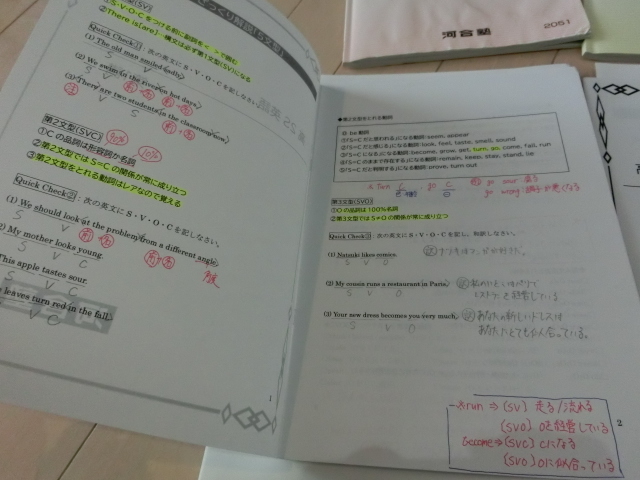 ①S・V・O・Cをつける前に副詞を< >で囲む
②There is(are)…構文は必ず第1文型(SV)になる
Quick Check① : 次の英文にS・V・O・Cを記しなさい。
(1) The old man smiled sadly.
S V
(2) We swam in the river on hot days.
S V
(3) There are two students in the classroom now.
V S
第2文型(SVC)
90% 10%
①Cの品詞は形容詞か名詞
②第2文型ではS=Cの関係が常に成り立つ
③第2文型をとれる動詞はレアなので覚える
Quick Check② : 次の英文にS・V・O・Cを記しなさい。
(1) We should look at the problem from a different angle.
S V
My mother looks young.
S V C
This apple tastes sour.
S V C
leaves turn red in the fall.
V C
1
河合塾
2051
◆第2文型をとれる動詞
be 動詞
「S=Cだと思われる」になる動詞: seem, appear
「S=Cだと感じる」になる動詞: look, feel, taste, smell, sound
「S=Cになる」になる動詞: become, grow, get, turn, go, come, fall, run
「S=Cのままで存在する」になる動詞: remain, keep, stay, stand, lie
「S=Cだと判明する」になる動詞: prove, turn out
turn C
go sour 腐る
go wrong 調子が悪くなる
第3文型(SVO)
①Oの品詞は100%名詞
②第3文型ではS≠Oの関係が常に成り立つ
Quick Check③ : 次の英文にS・V・O・Cを記し、和訳しなさい。
(1) Natsuki likes comics.
S V O
(2) My cousin runs a restaurant in Paris.
S V O
訳 私のいとこはパリで
レストランを経営している
(3) Your new dress becomes you very much.
S V O
訳 あなたの新しいドレスは
あなたにとても似合っている。
※run ⇒ (SV) 走る/流れる
(SVO) Oを経営している
become ⇒ (SVC) Cになる
(SVO) Oに似合っている
2